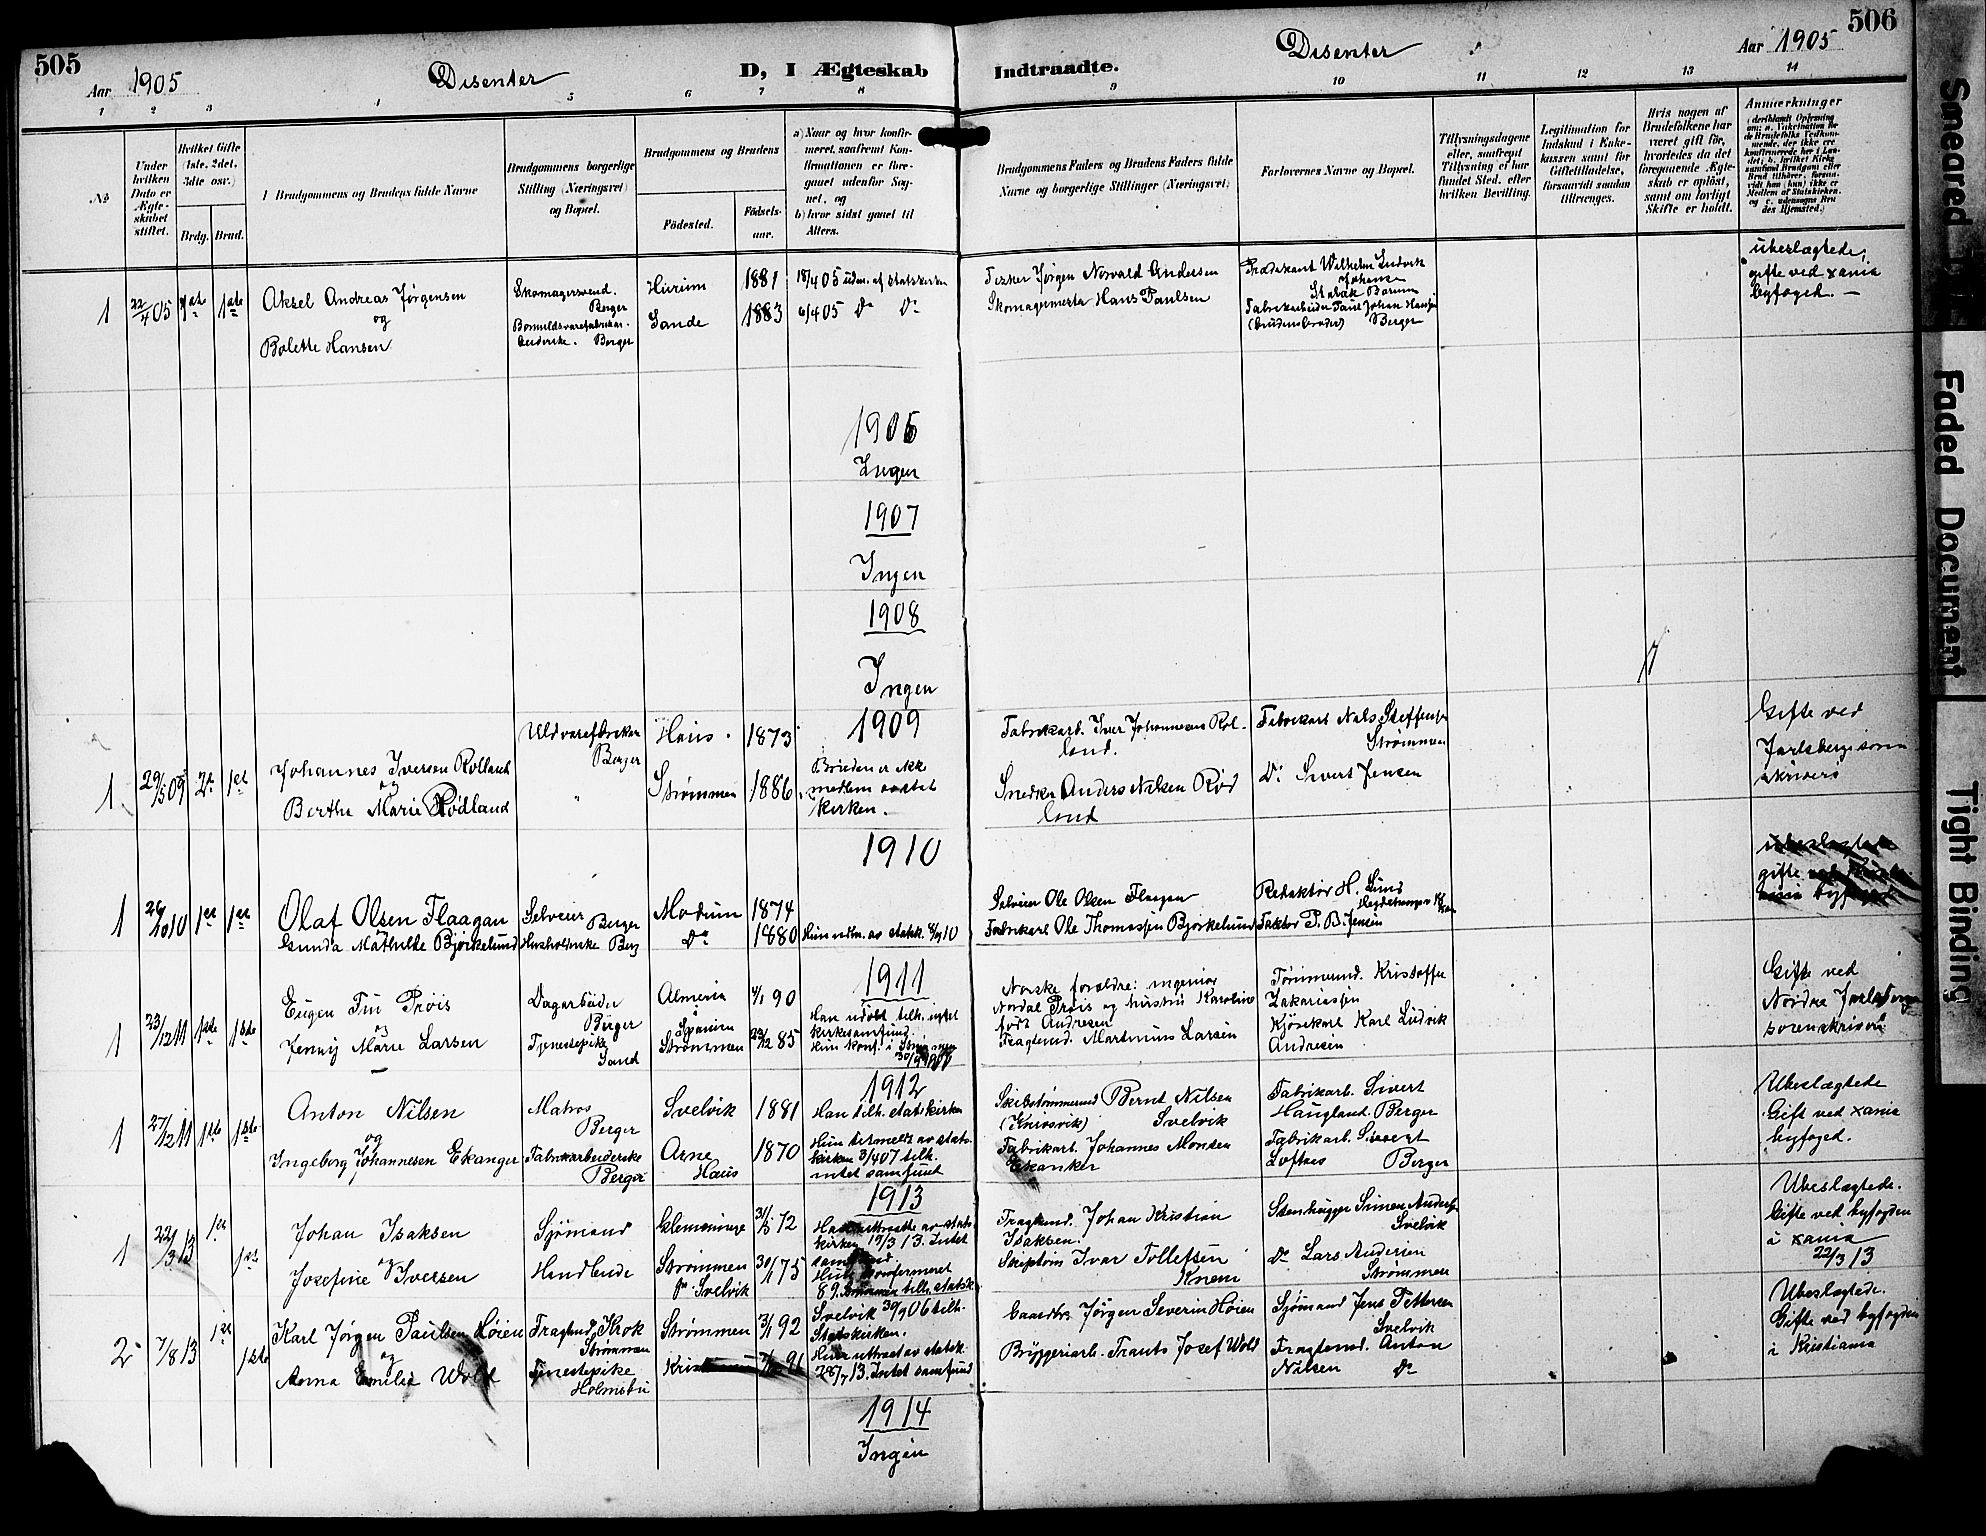 505
Aar 1905
Disenter
D, I Ægteskab
Indtraadte.
Disenter
Aar 1905
506
1 2 3 4 5 6 7 8 9 10 11 12 13 14
No
Under hvilken Dato er Ægteskabet stiftet.
Hvilket Gifte (1ste, 2det, 3dte osv.)
Brdg. Brud.
Brudgommens og Brudens fulde Navne
Brudgommens borgerlige Stilling (Næringsvei) og Bopæl.
Brudgommens og Brudens
Födested.
Födselsaar.
a) Naar og hvor konfirmeret, saafremt Konfirmationen er foregaaet udenfor Sognet, og
b) hvor sidst gaaet til Alters.
Brudgommens Faders og Brudens Faders fulde Navne og borgerlige Stillinger (Næringsvei)
Forlovernes Navne og Bopæl.
Tillysningsdagene eller, saafremt Tillysning ei har fundet Sted, efter hvilken Bevilling.
Legitimation for Indskud i Enkekassen samt for Giftetilladelse, forsaavidt saadan tiltrænges.
Hvis nogen af Brudefolkene har været gift för, hvorledes da det foregaaende Ægteskab er oplöst, samt om lovligt Skifte er holdt.
Anmærkninger
1 22/4 05 1ste 1ste
Aksel Andreas Jørgensen
og
Bolette Hansen
Skomagersvend.
Berger
Berger
Hurum 1881
Sande 1883
18/4 05 udm. af statskirken
6/4 05 Do Do
Fisker Jørgen Norvald Andersen
Skomagermester Hans Paulsen
Prædikant Wilhelm Ludvik
Johansen
Stabæk Bærum
Fabrikarbeider Paul Johan Hansen
(brudens broder) Berger
ubeslægtede,
gifte ved Xania
byfoged. —
1906
Ingen
1907
Ingen
1908
Ingen
1909
1 29/5 09 2de 1ste
Johannes Iversen Rolland
og
Berthe Marie Rødland
Berger
Haus. 1873
Strømmen 1886
Bruden er ikke
medlem av stats
kirken.
Fabrikarb. Iver Johannesen Rol-
land.
Snedker Anders Nilsen Rød
land
Fabrikarb Nils Steffensen
Strømmen
Do Sivert Jensen
Gifte ved
Jarlsberg soren
skriver
1910
1 26/10 10 1ste 1ste
Olaf Olsen Flaagan
Gunda Mathilde Bjørkelund
Selveier
Berger
Husholderske Berg
Modum 1874
Do 1880
Hun udm. av statsk. 8/9 10
Selveier Ole Olsen Flaagan
Fabrikarb Ole Thomassen Bjørkelund
Redaktør H. Lund
Faktor P. B. Jensen
ubeslægtede
gifte
1911
1 23/12 11 1ste 1ste
Eugen Prøis
og
Jenny Marie Larsen
Dagarbeider
Berger
Tjenestepike
Sand
Almeria
Spanien
Strømmen
4/1 90
22/12 85
Han udøbt tilh. intet
kirkesamfund.
Hun konf. i Strømmen
Norske foreldre: ingeniør
Nordal Prøis og hustru Karoline
født Andresen
Fragtemd. Martinius Larsen
Tømmermd. Kristoffer
Zakariassen
Karl Ludvik
Andresen
Gifte ved
Nordre Jarlsberg
sorenskriveri
1912
1 27/12 11 1ste 1ste
Anton Nilsen
og
Ingeborg Johannesen Ekanger
Matros
Berger
Fabrikarbeiderske
Berger
Svelvik 1881
Arne
Haus 1870
Han tilh. statskirken
Hun utmeldt av stats-
kirken 3/4 07 tilh.
intet samfund
Skibstømmermd Bernt Nilsen
Svelvik
Fabrikarb. Johannes Monsen
Ekanker
Fabrikarb. Sivert
Haugland. Berger
Fabrikarb. Sivert
Loftnes Berger
Ubeslægtede
Gift ved Xania
byfoged.
1913
1 22/3 13 1ste 1ste
Johan Isaksen
og
Josefine Iversen
Sjømand
Handlende
Strømmen
pr. Svelvik
31/3 72
30/1 75
kirken 19/3 13. Intet
samfund.
Hun konfirmeret
89. Strømmen tilh. statsk.
Fragtemd. Johan Kristian
Isaksen.
Ivar Tollefsen
Knem
Stenhugger Simen Andersen
Svelvik
Do Lars Andersen
Strømmen
Ubeslægtede.
Gifte ved byfogden
i Xania
22/3 13
2 7/8 13 1ste 1ste
Karl Jørgen Paulsen Høien
og
Anna Emilie Wold
Fragtemd, Krok
Strømmen
Tjenestepike
Holmsbu
Strømmen 3/1 92
91
Svelvik 30/9 06 tilh.
Statskirken.
Hun uttraat av statsk.
28/7 13. Intet samfund
Gaardbr. Jørgen Severin Høien
Bryggeriarb. Frants Josef Wold
Sjømand Jens Pettersen
Svelvik
Fragtemd. Anton
Nilsen Do
Ubeslægtede.
Gifte ved byfogden
i Kristiania
1914
Ingen
Smeared
Faded Document
Tight Binding